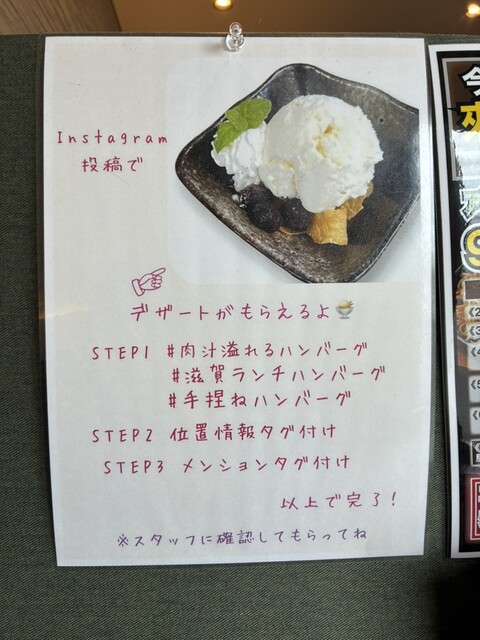 Instagram
投稿で
デザートがもらえるよ🍨
STEP1 #肉汁溢れるハンバーグ
#滋賀ランチハンバーグ
#手捏ねハンバーグ
STEP2 位置情報タグ付け
STEP3 メンションタグ付け
以上で完了!
※スタッフに確認してもらってね